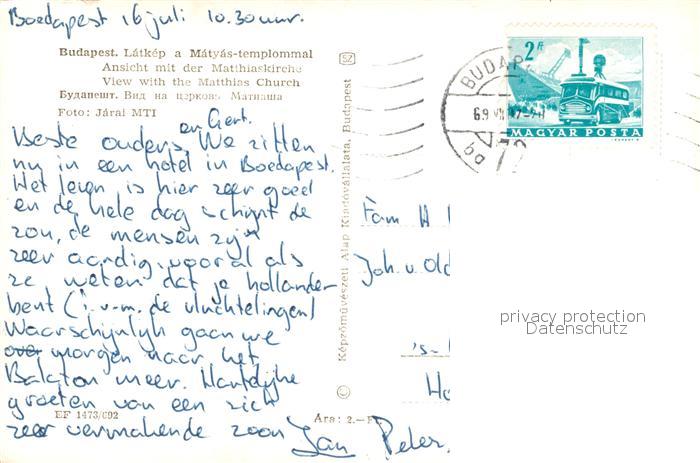 Boedapest 16 juli 10.30 uur.
Budapest. Látkép a Mátyás-templommal
Ansicht mit der Matthiaskirche
View with the Matthias Church
Будапешт. Вид на церковь Матиаша
Foto: Járai-MTI
en Gert.
Beste ouders, We zitten
nu in een hotel in Boedapest.
Het leven is hier zeer goed
en de hele dag schijnt de
zon, de mensen zijn
zeer aardig, vooral als
ze weten dat je hollander
bent (i.v.m. de vluchtelingen)
Waarschijnlijk gaan we
over morgen naar het
Balaton meer. Hartelijke
groeten van een zich
zeer vermakende zoon Jan Peter.
EF 1473/692
Ára: 2.-Ft
SZ
Képzőművészeti Alap Kiadóvállalata, Budapest
BUDAP
69 VII 17
2 Ft
MAGYAR POSTA
Fam H
Joh. v. Old
's-
Ha
privacy protection
Datenschutz